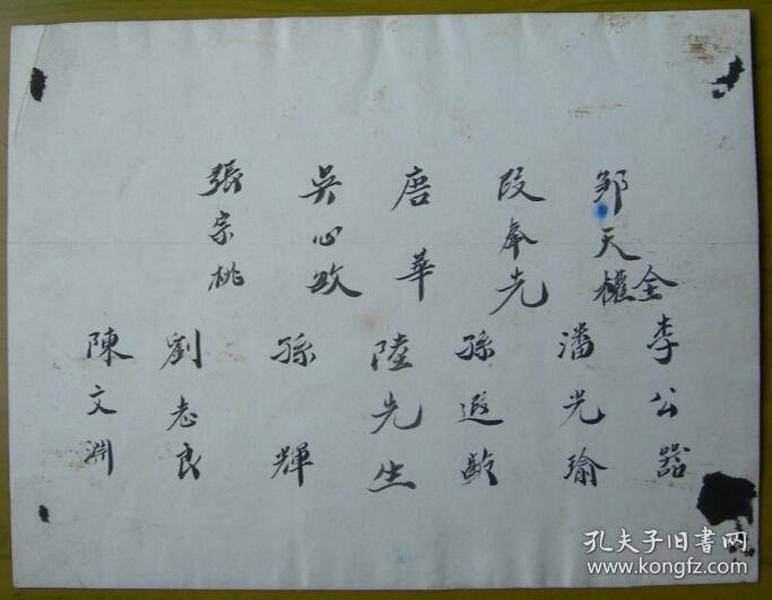 邹天權
全
段奉先
唐華
吳心欧
張宗桃
李公器
潘光瑜
孫遐齡
陸先生
孫輝
劉志良
陳文淵
孔夫子旧書网
www.kongfz.com